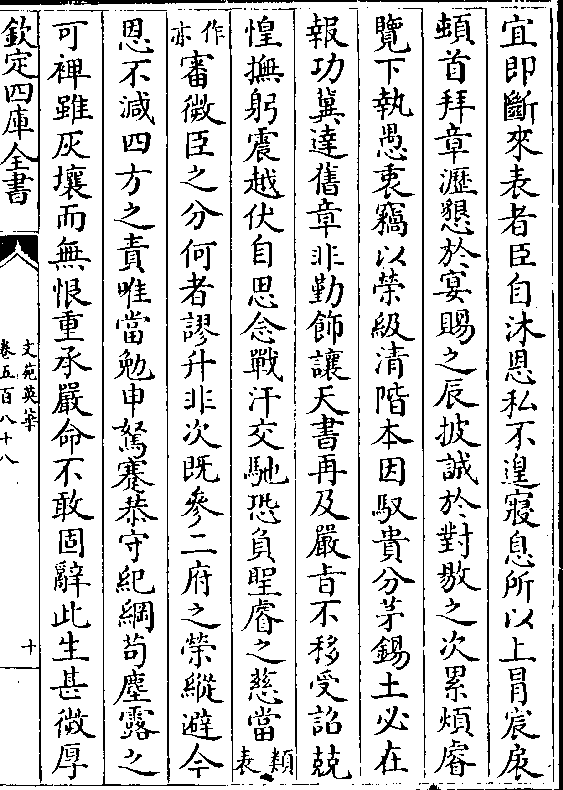 宜即斷來表者臣自沐恩私不遑寢息所以上冒宸扆
頓首拜章瀝懇於宴賜之辰披誠於對敭之次累煩睿
覽下執愚衷竊以榮級清階本因馭貴分茅錫土必在
報功冀達舊章非勤飾讓天書再及嚴㫖不移受詔兢
惶撫躬震越伏自思念戰汗交馳恐負聖睿之慈當類表
作亦審微臣之分何者謬升非次既參二府之榮縱避今
恩不減四方之責唯當勉申駑蹇恭守紀綱苟塵露之
可裨雖灰壤而無恨重承嚴命不敢固辭此生甚微厚
欽定四庫全書
文苑英華
卷五百八十八
十